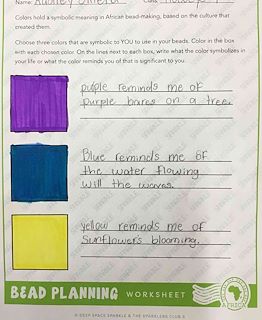 Name:
Colors hold a symbolic meaning in African bead-making, based on the culture that
created them.
Choose three colors that are symbolic to YOU to use in your beads. Color in the box
with each chosen color. On the lines next to each box, write what the color symbolizes
in your life or what the color reminds you of that is significant to you.
puple reminds me of
purple bares on a tree.
Blue reminds me of
the water flowing
will the waves.
yellow reminds me of
Sunflowers blooming.
BEAD PLANNING WORKSHEET
AFRICA
© DEEP SPACE SPARKLE & THE SPARKLERS CLUB